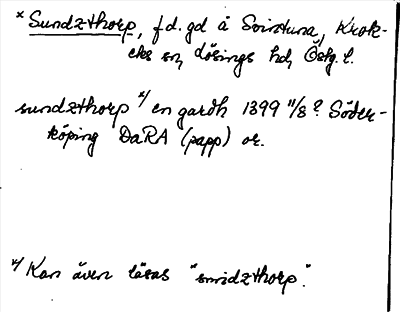 * Sundzthorp, f.d. gd å Svintuna, Krok-
eks sn, Lösings hd, Östg. l.
sundzthorp */ en gardh 1399 11/8? Söder-
köping DaRA (papp) or.
*/ Kan även läsas "smidzthorp".